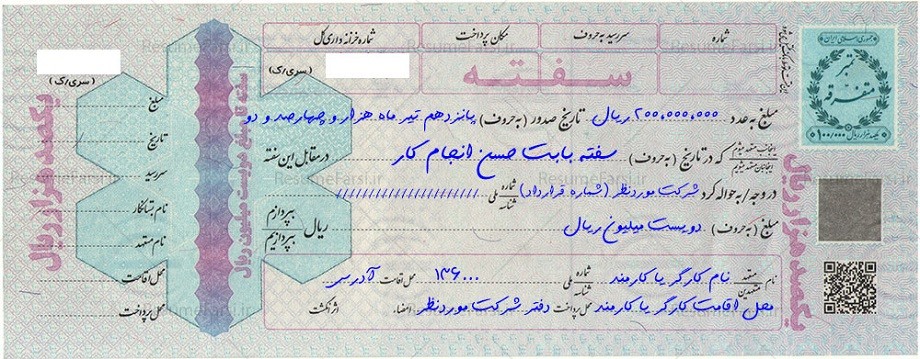 شماره
سررسید به‌حروف
مکان پرداخت
شماره خزانه‌داری کل
سفته
(سری/ک)
(سری/ک)
جمهوری اسلامی ایران
تمبر
متفرقه
یکصد هزار ریال ۱۰۰/۰۰۰
مبلغ به عدد ۲۰۰,۰۰۰,۰۰۰ ریال تاریخ صدور (به حروف) پانزدهم تیر ماه هزار و چهارصد و دو
اینجانب متعهد میشوم
اینجانبان متعهد میشویم
که در تاریخ (به حروف) سفته بابت حسن انجام کار در مقابل این سفته
در وجه / به حواله کرد شرکت مورد نظر (شماره قرارداد) شماره ملی شناسه //////////////////
بپردازم
بپردازیم
مبلغ (به حروف) دویست میلیون ریال ریال
نام متعهد متعهدین نام کارگر یا کارمند شماره ملی شناسه ۱۳۶۰۰۰ محل اقامت آدرسی
محل اقامت کارگر یا کارمند محل پرداخت دفتر شرکت مورد نظر امضاء اثر انگشت
یکصد هزار ریال
سفته تا مبلغ دویست میلیون ریال
مبلغ
تاریخ
سررسید
نام بستانکار
نام متعهد
محل اقامت
محل پرداخت
یکصد هزار ریال
ResumeFarsi.ir
ResumeFarsi.ir
ResumeFarsi.ir